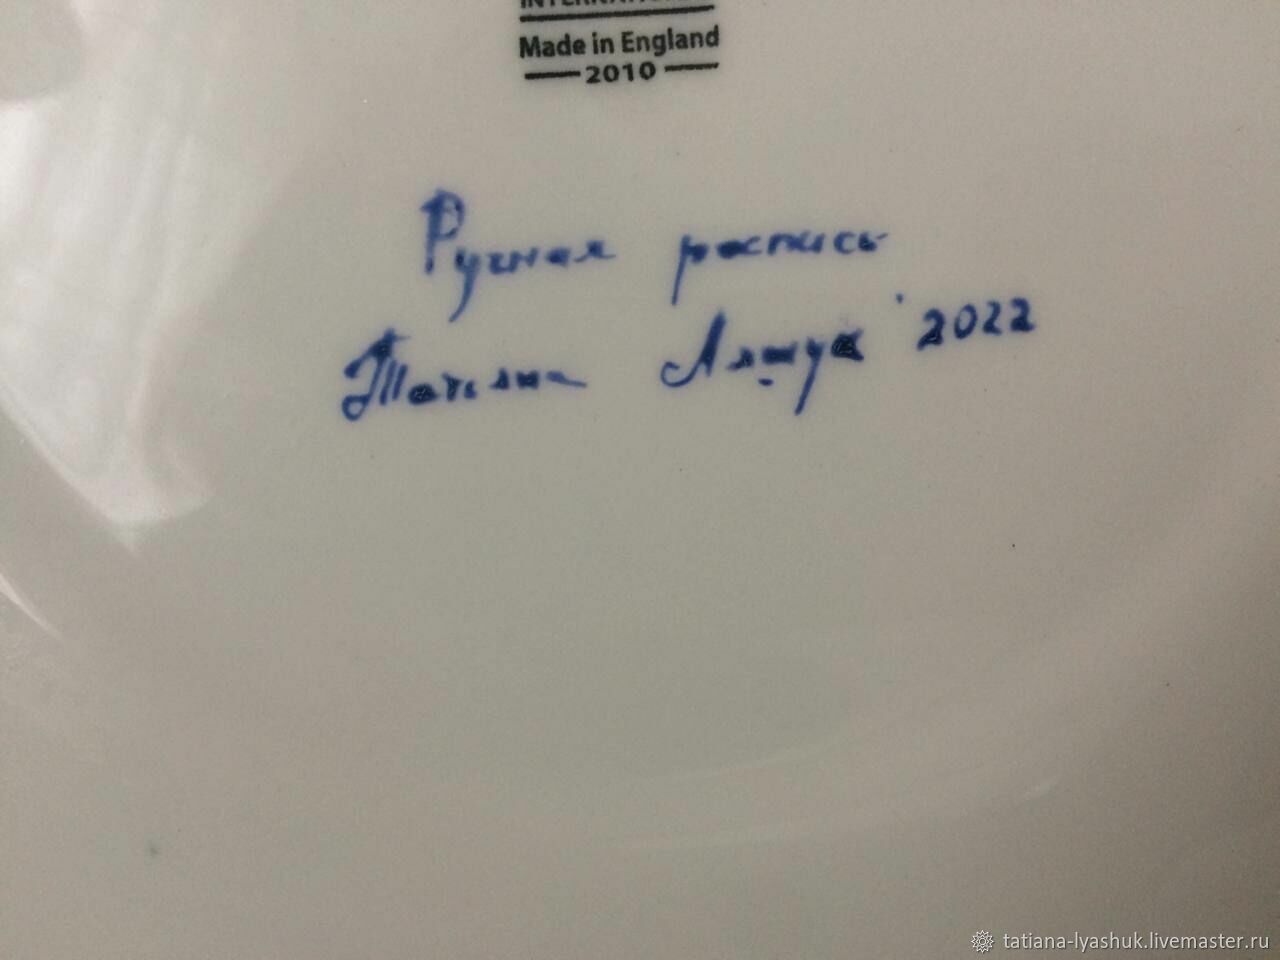 Made in England
2010
Ручная роспись
Татьяна Ляшук '2022
tatiana-lyashuk.livemaster.ru